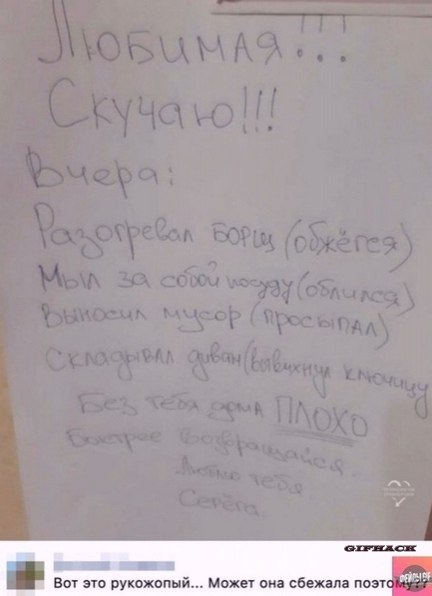 Любимая!!!
Скучаю!!!
Вчера:
Разогревал борщ (обжёгся)
Мыл за собой посуду (облился)
Выносил мусор (просыпал)
Складывал диван (вывихнул ключицу
Без тебя дома ПЛОХО
Быстрее возвращайся
Люблю тебя
Серёга
GIFHACK
Вот это рукожопый... Может она сбежала поэтому??